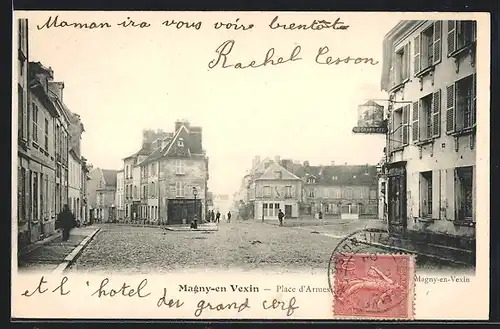 Maman ira vous voire bientôt
Rachel Cesson
DU GRAND CERF
Magny-en Vexin — Place d'Armes
Magny-en-Vexin
à l'hotel du grand cerf